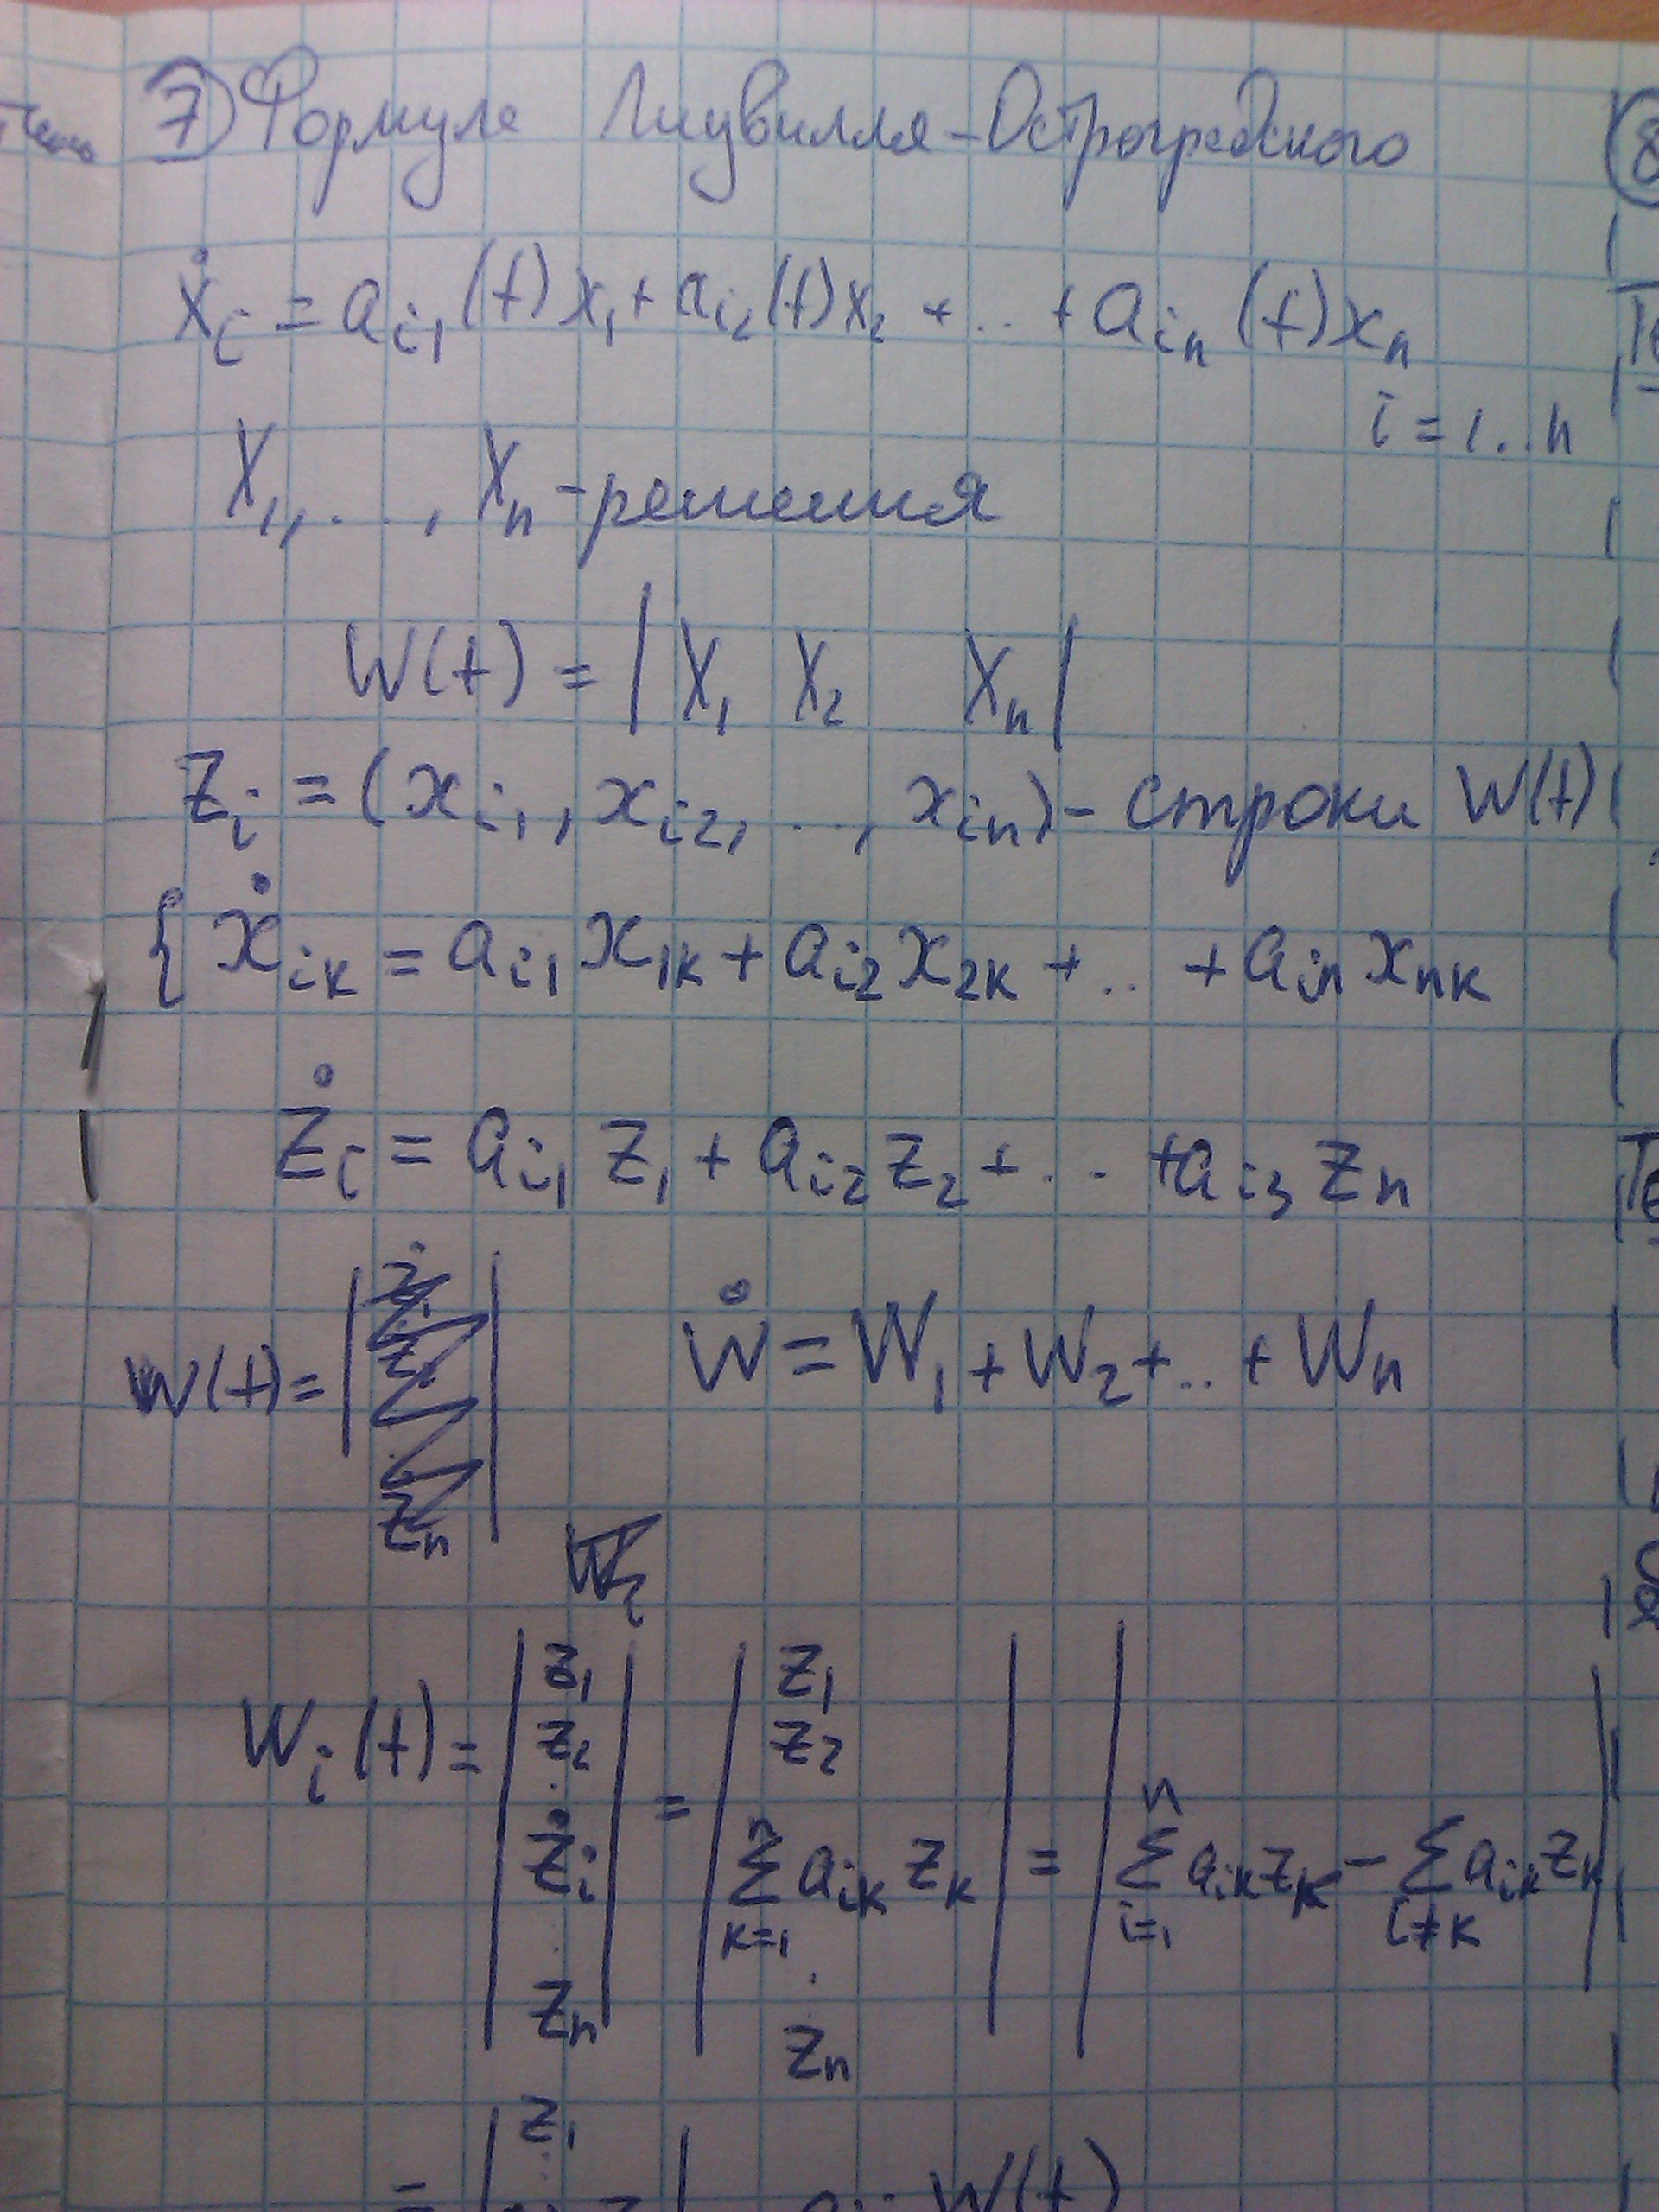 7 Формула Лиувилля-Остроградского
ẋᵢ = aᵢ₁(t)x₁ + aᵢ₂(t)x₂ + .. + aᵢₙ(t)xₙ
i = 1..n
X₁, ..., Xₙ - решения
W(t) = | X₁ X₂ Xₙ |
zᵢ = (xᵢ₁, xᵢ₂, .., xᵢₙ) - строки W(t)
{ ẋᵢₖ = aᵢ₁x₁ₖ + aᵢ₂x₂ₖ + .. + aᵢₙxₙₖ
żᵢ = aᵢ₁z₁ + aᵢ₂z₂ + .. + aᵢ₃zₙ
W(t) = | | Ẇ = W₁ + W₂ + .. + Wₙ
zₙ
Wᵢ(t) = | z₁ z₂ . żᵢ . zₙ | = | z₁ z₂ ∑ₖ₌₁ⁿ aᵢₖzₖ . zₙ | = | ∑ᵢ₌₁ⁿ aᵢₖzₖ - ∑ᵢ≠ₖ aᵢₖzₖ |
= | z₁ .. | W(t)
8